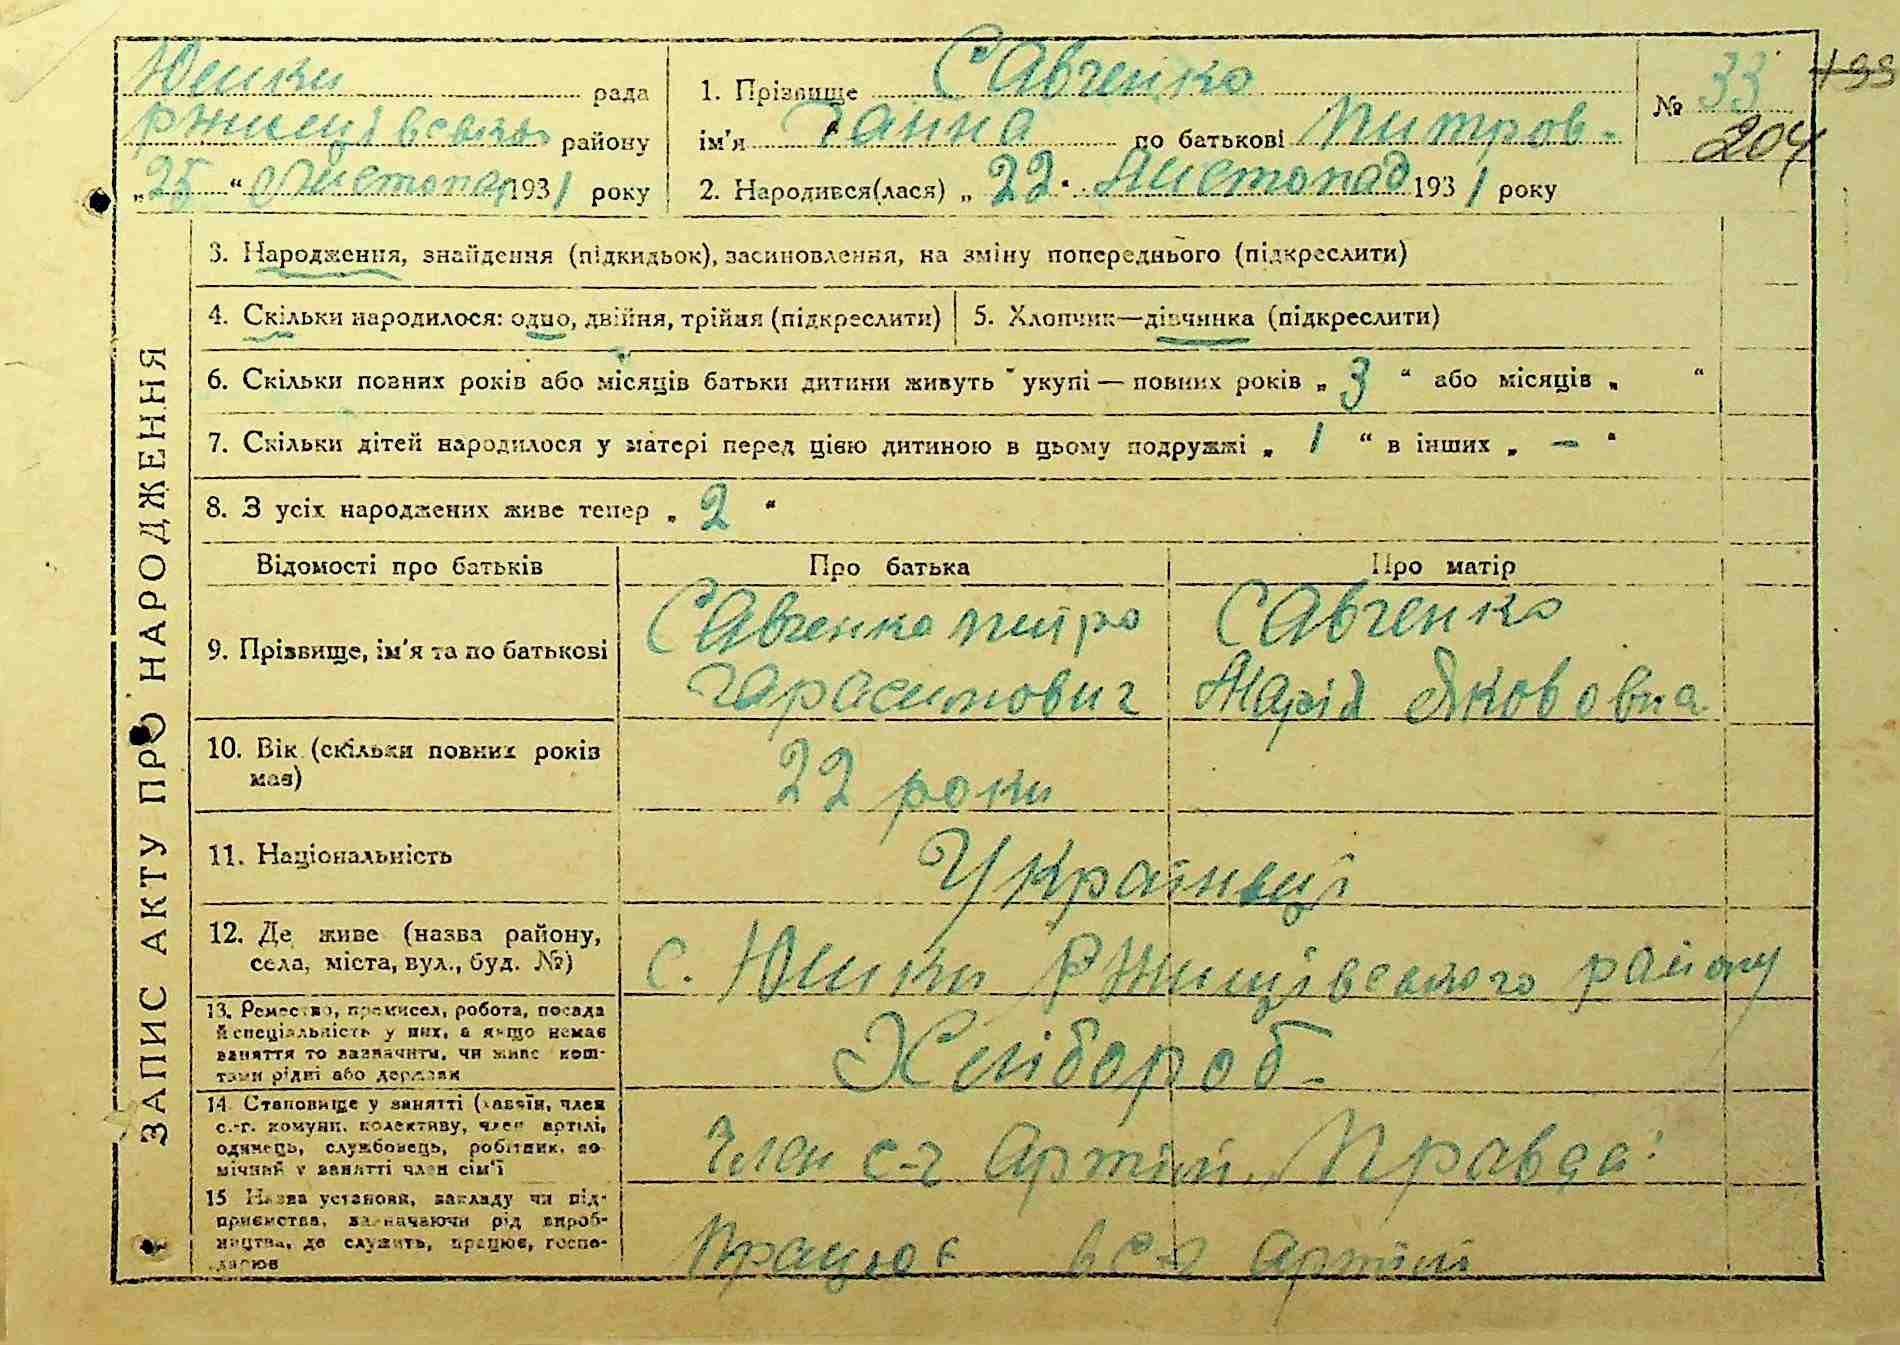 Юшки рада
Ржищівського району
„25“ Листопад 1931 року
1. Прізвище Савченко
ім'я Ганна по батькові Питров-
2. Народився(лася) „22“ Листопад 1931 року
№ 33
199
204
ЗАПИС АКТУ ПРО НАРОДЖЕННЯ
3. Народження, знайдення (підкидьок), засиновлення, на зміну попереднього (підкреслити)
4. Скільки народилося: одно, двійня, трійня (підкреслити)
5. Хлопчик—дівчинка (підкреслити)
6. Скільки повних років або місяців батьки дитини живуть укупі — повних років „3“ або місяців „ “
7. Скільки дітей народилося у матері перед цією дитиною в цьому подружжі „1“ в інших „—“
8. З усіх народжених живе тепер „2“
Відомості про батьків Про батька Про матір
9. Прізвище, ім'я та по батькові
Савченко Питро
Гарасимович
Савченко
Марія Якововна
10. Вік (скільки повних років
має)
22 роки
11. Національність
Українці
12. Де живе (назва району,
села, міста, вул., буд. №)
с. Юшки Ржищівського району
13. Ремество, промисел, робота, посада
й спеціальність у них, а якщо немає
заняття то зазначити, чи живе кош-
тами рідні або держави
Хлібороб-
14. Становище у занятті (хазяїн, член
с.-г. комуни, колективу, член артілі,
одинець, службовець, робітник, по-
мічний у занятті член сім'ї
Член с-г Артілі „Правда“
15 Назва установи, закладу чи під-
приємства, зазначаючи рід вироб-
ництва, де служить, працює, госпо-
дарює
Працює в с-г артілі